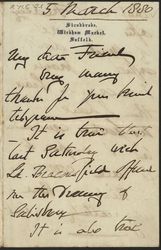 5 March 1880
Stradbroke,
Wickham Market,
Suffolk.
My dear
Very many
thanks for your kind
telegram
It is true
last Saturday with
Ld Beaconsfield offered
me the
Salisbury
It is also true